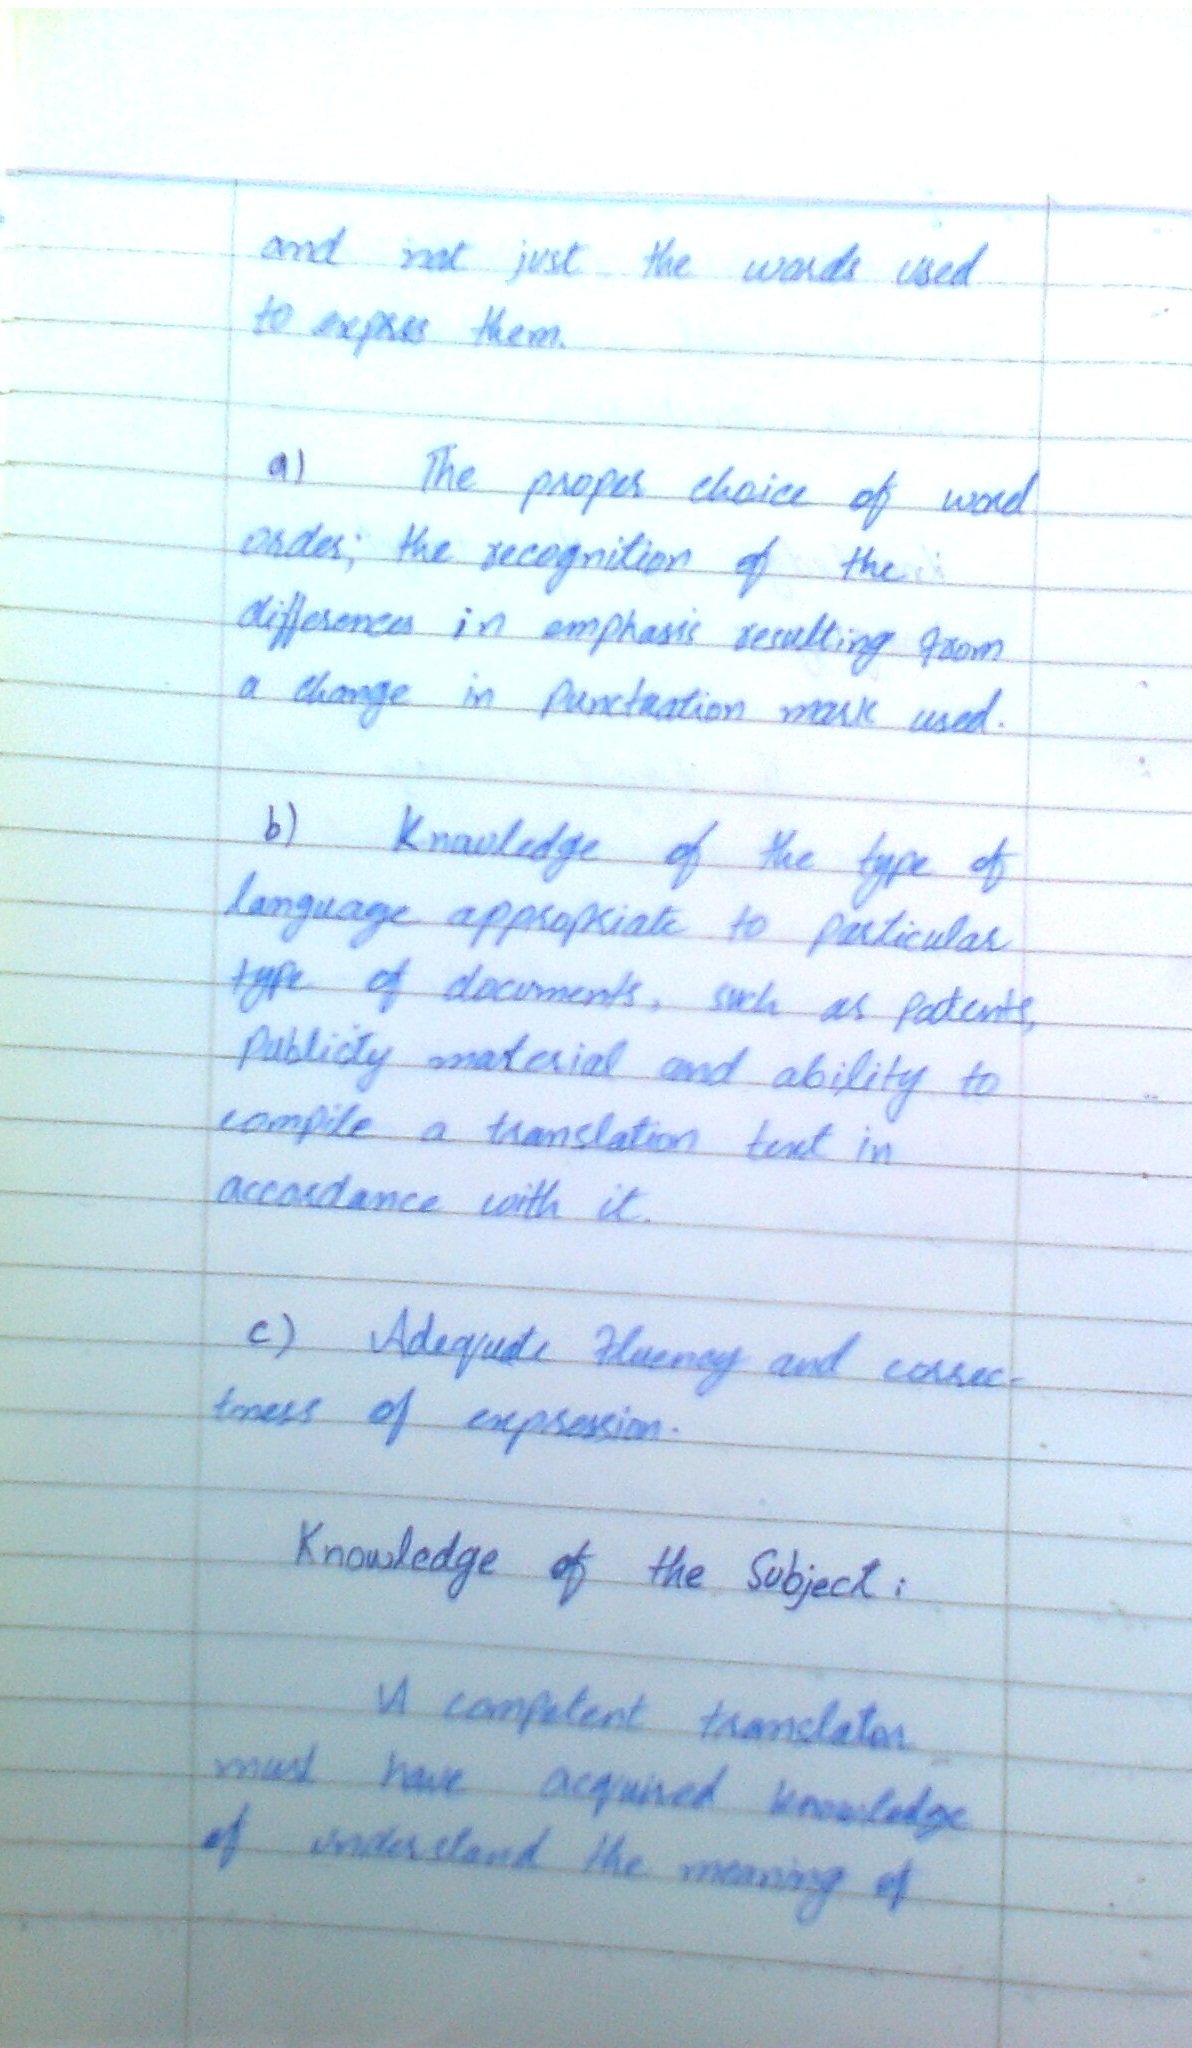 and not just the words used
to expres them.
a) The proper choice of word
order; the recognition of the
differences in emphasis resulting from
a change in Punctuation mark used.
b) Knowledge of the type of
language appropriate to particular
type of documents, such as patents,
Publicity material and ability to
compile a translation text in
accordance with it.
c) Adequate Fluency and correc-
tness of expression.
Knowledge of the Subject:
A competent translator
must have acquired knowledge
of understand the meaning of